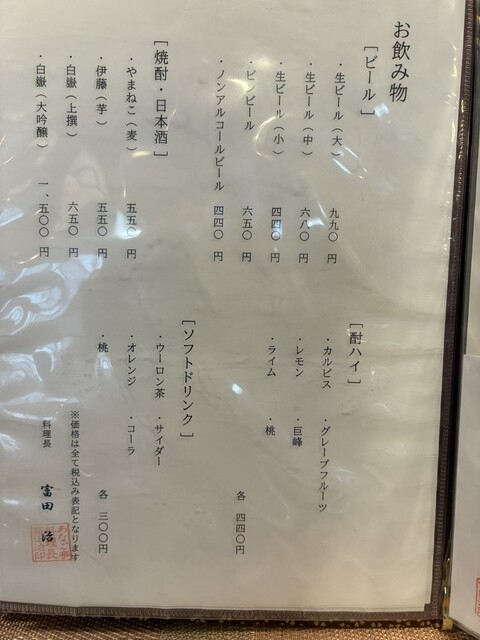 お飲み物
[ビール]
・生ビール（大） 九九〇 円
・生ビール（中） 六八〇 円
・生ビール（小） 四四〇 円
・ビンビール 六五〇 円
・ノンアルコールビール 四四〇 円
[焼酎・日本酒]
・やまねこ（麦） 五五〇 円
・伊藤（芋） 五五〇 円
・白嶽（上撰） 六五〇 円
・白嶽（大吟醸） 一、五〇〇 円
[酎ハイ]
・カルピス ・グレープフルーツ
・レモン ・巨峰
・ライム ・桃
各 四四〇円
[ソフトドリンク]
・ウーロン茶 ・サイダー
・オレンジ ・コーラ
・桃 各 三〇〇円
※価格は全て税込み表記となります
料理長 富田 治